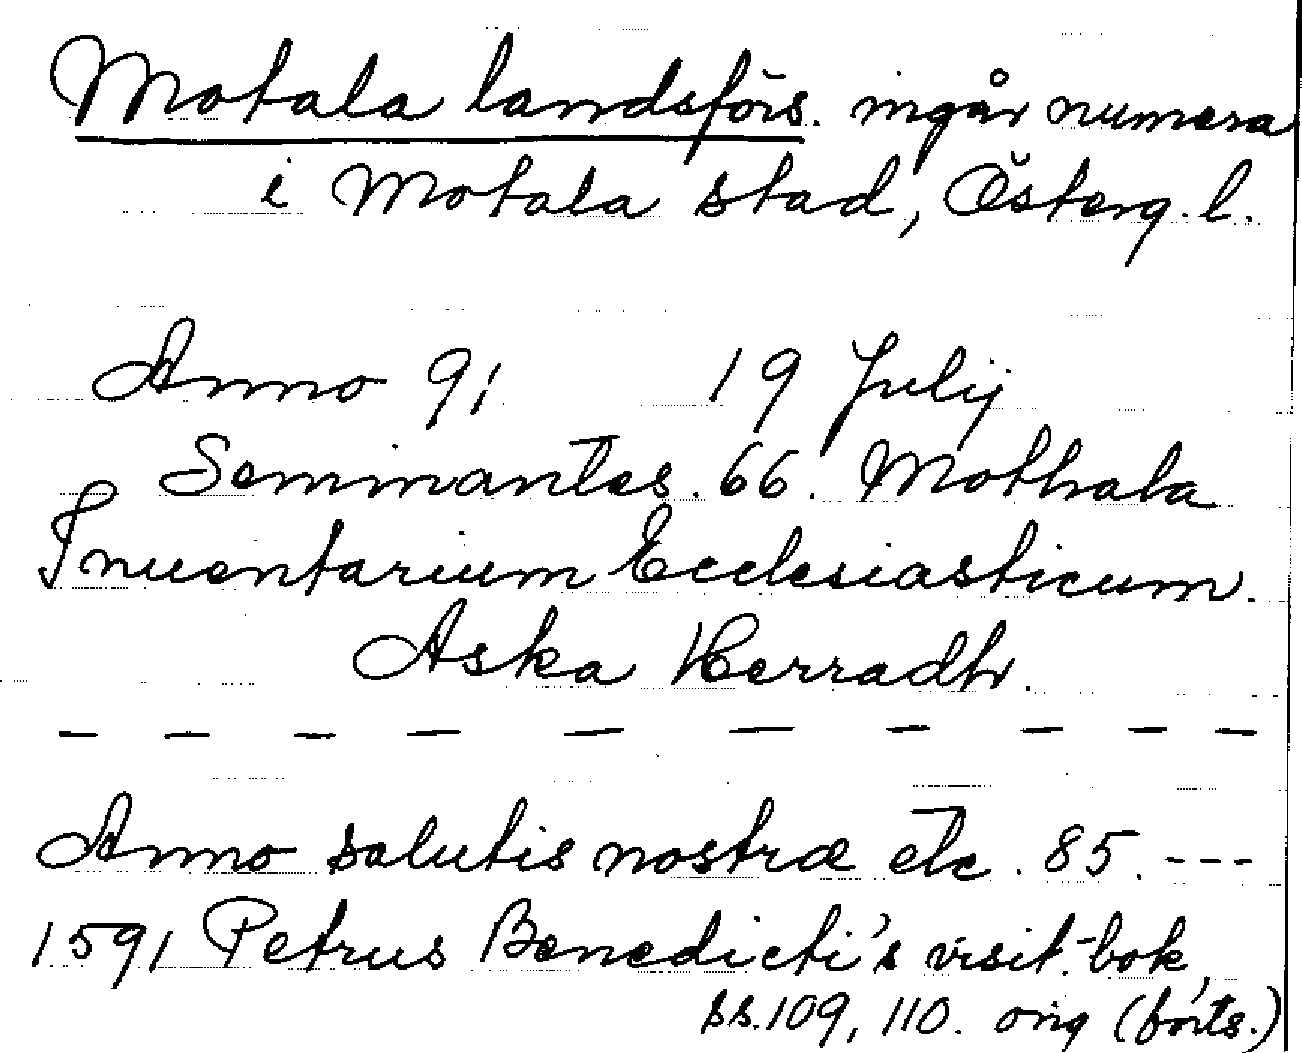 Motala landsförs. ingår numera
i Motala stad, Österg. l.
Anno 91 19 Julij
Seminantes. 66. Mothala
Inuentarium Ecclesiasticum.
Aska Herradh.
— — — — — — — — — —
Anno salutis nostræ etc. 85. ---
1591 Petrus Benedicti's visit.-bok,
ss. 109, 110. orig (forts.)